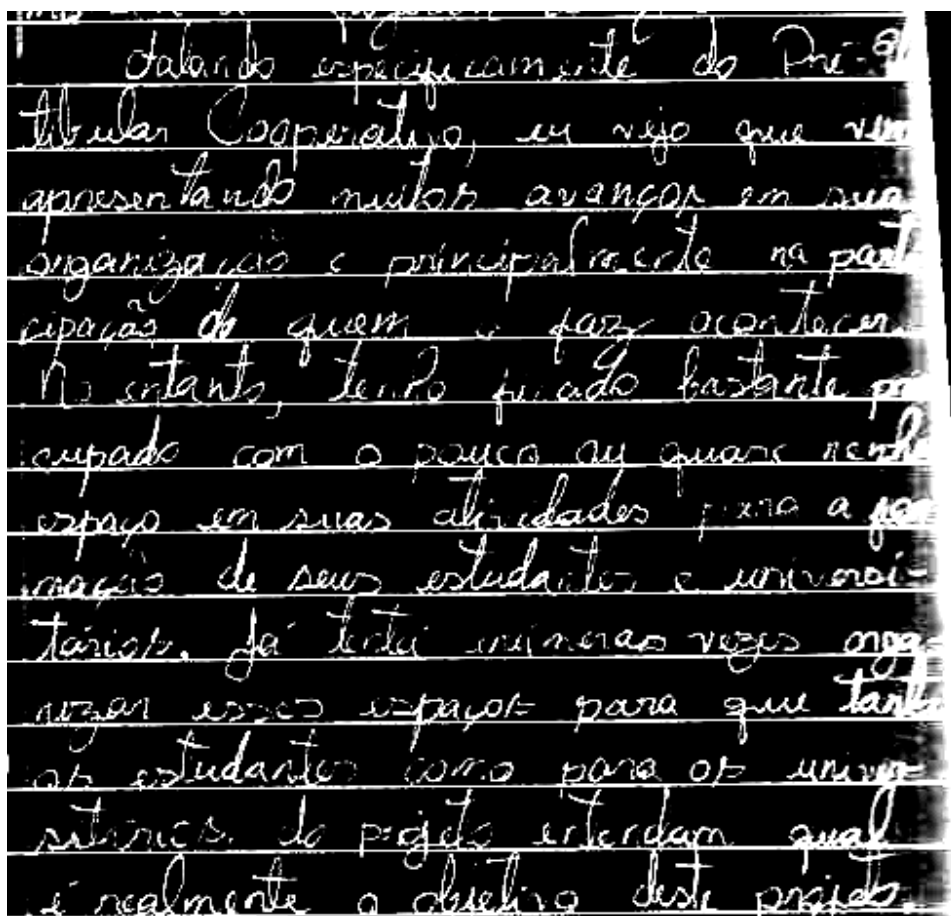 Falando especificamente do Pré-
tibular Cooperativo, eu vejo que vem
apresentando muitos avanços em sua
organização e principalmente na parti
cipação de quem o faz acontecer.
No entanto, tenho ficado bastante
cupado com o pouco ou quase nenhum
espaço em suas atividades para a for
mação de seus estudantes e universi-
tários. Já tentei inúmeras vezes orga
nizar esses espaços para que tanto
os estudantes como para os univer
sitários do projeto entendam qual
é realmente o objetivo deste projeto.